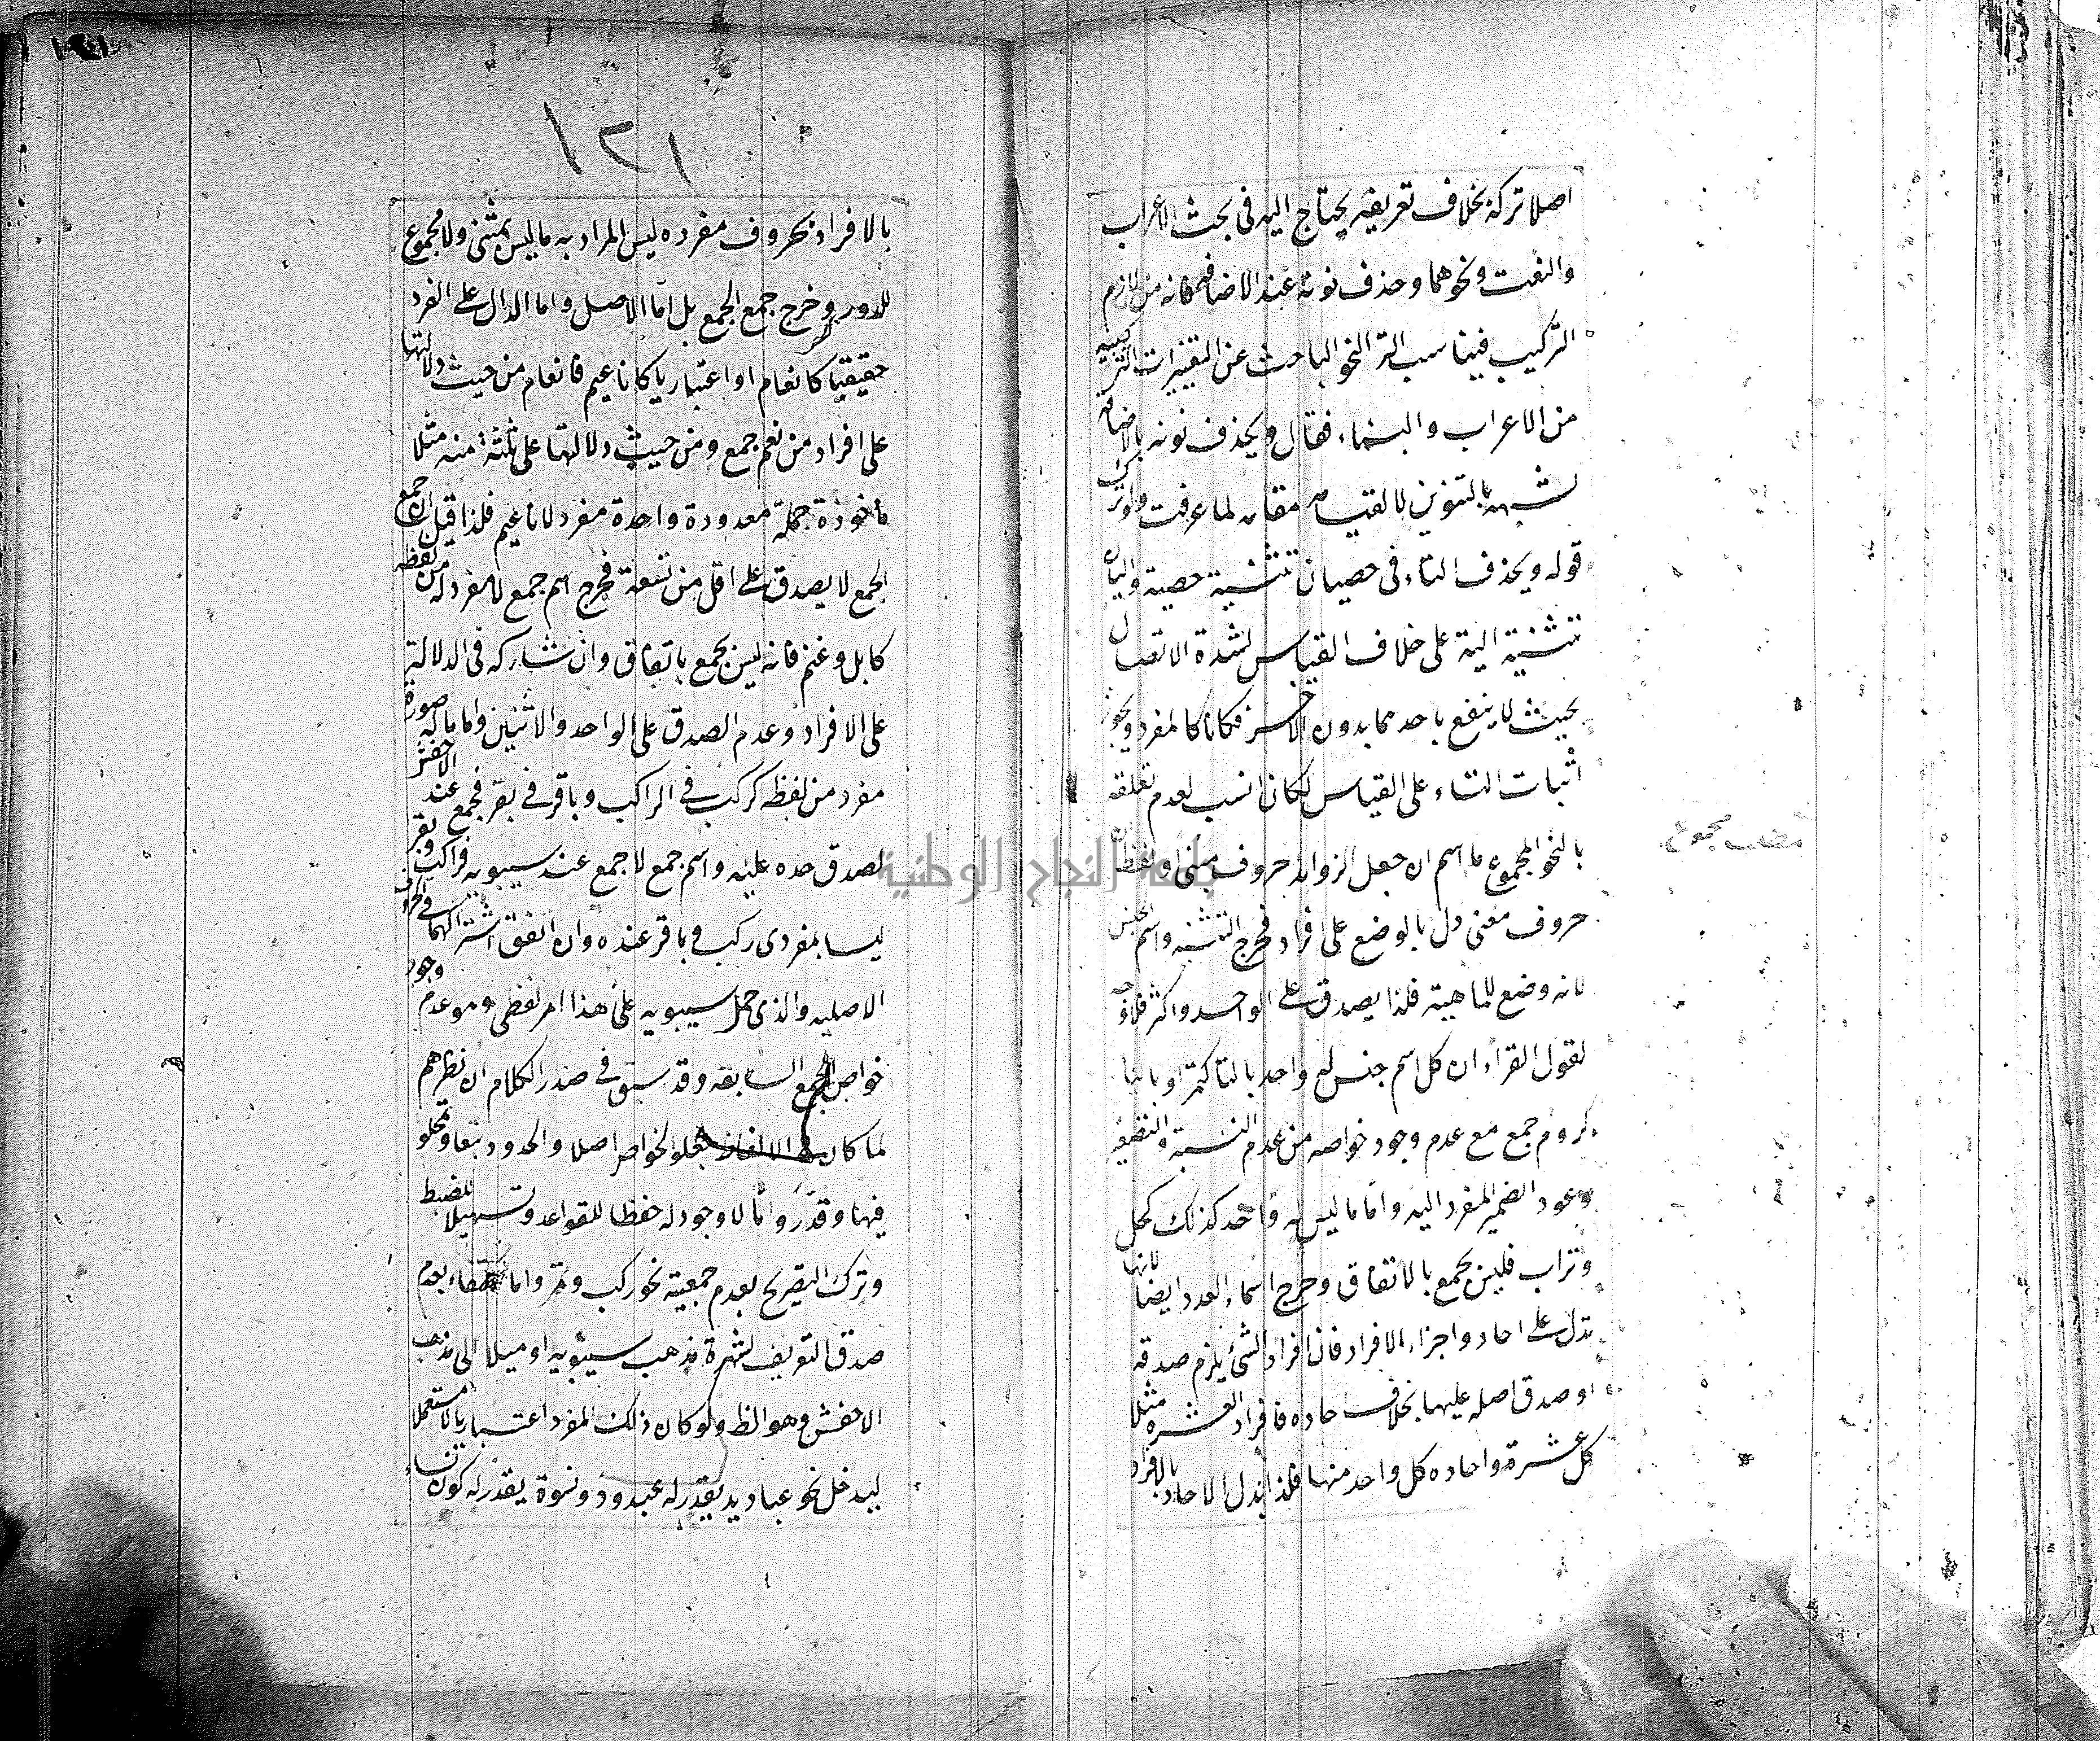 اصلا تركه بخلاف تعريفه يحتاج اليه فى بحث الاعراب
والنعت ونحوهما وحذف نونه عند الاضافة فانه من لوازم
التركيب فيناسب النحو الباحث عن التغييرات التركيبية
من الاعراب والبناء فقال ويحذف نونه بالاضافة
لشبهه بالتنوين لا لقيامه مقامه لما عرفت وترك
قوله ويحذف التاء فى خصيان تثنية خصية واليان
تثنية الية على خلاف القياس لشدة الاتصال
بحيث لا ينفع باحدهما بدون الاخر فكانا كالمفرد ويجوز
اثبات التاء على القياس لكان انسب لعدم تعلقه
بالنحو المجموع ما اسم ان جعل الزوائد حروف مبنى او لفظ ان
حروف معنى دل بالوضع على افراد فخرج التثنية واسم الجنس
لانه وضع للماهية فلذا يصدق على الواحد واكثر فلا وجه
لقول الفراء ان كل اسم جنس له واحد بالتا كتمرة او باليا
كروم جمع مع عدم وجود خواصه من عدم النسبة والتصغير
وعود الضمير المفرد اليه واما ما ليس له واحد كذلك كخل
وتراب فليس بجمع بالاتفاق وخرج اسماء العدد ايضا لانها
تدل على احاد واجزاء لا افراد فان افراد الشئ يلزم صدقه
او صدق اصله عليها بخلاف احاده فافراد العشرة مثلا
كل عشرة واحاده كل واحد منها فلذا ابدل الاحاد بالافراد
مطلب مجموع
١٢١
بالافراد بحروف مفرده ليس المراد به ما ليس بمثنى ولا مجموع
للدور وخرج جمع الجمع بل اما الاصل واما الدال على الفرد
حقيقيا كانعام او اعتباريا كاناعيم فانعام من حيث دلالتها
على افراد من نعم جمع ومن حيث دلالتها على ثلثة منه مثلا
ماخوذة جملة معدودة واحدة مفرد لاناعيم فلذا قيل ان جمع
الجمع لا يصدق على اقل من تسعة فخرج اسم جمع لا مفرد له من لفظه
كابل وغنم فانه ليس بجمع باتفاق وان شاركه فى الدلالة
على الافراد وعدم الصدق على الواحد والاثنين واما ما له صورة
مفرد من لفظه كركب فى الراكب وباقر فى بقر فجمع عند الاخفش
لصدق حده عليه واسم جمع لا جمع عند سيبويه فراكب وبقر
ليسا بمفردى ركب وباقر عنده وان اتفق اشتراكهما فى الحروف
الاصلية والذى حمل سيبويه على هذا امر لفظى وهو عدم وجود
خواص الجمع السابقة وقد سبق فى صدر الكلام ان نظرهم
لما كان فى الالفاظ جعلوا الخواص اصلا والحدود تبعا وتمحلوا
فيها وقدروا ما لا وجود له حفظا للقواعد وتسهيلا للضبط
وترك التصريح بعدم جمعية نحو ركب وتمر واما اكتفاء بعدم
صدق التعريف لشهرة مذهب سيبويه او ميلا الى مذهب
الاخفش وهو الظ ولو كان ذلك المفرد اعتباريا لا مستعملا
ليدخل نحو عباديد يقدر له عبدود ونسوة يقدر له كون نساء